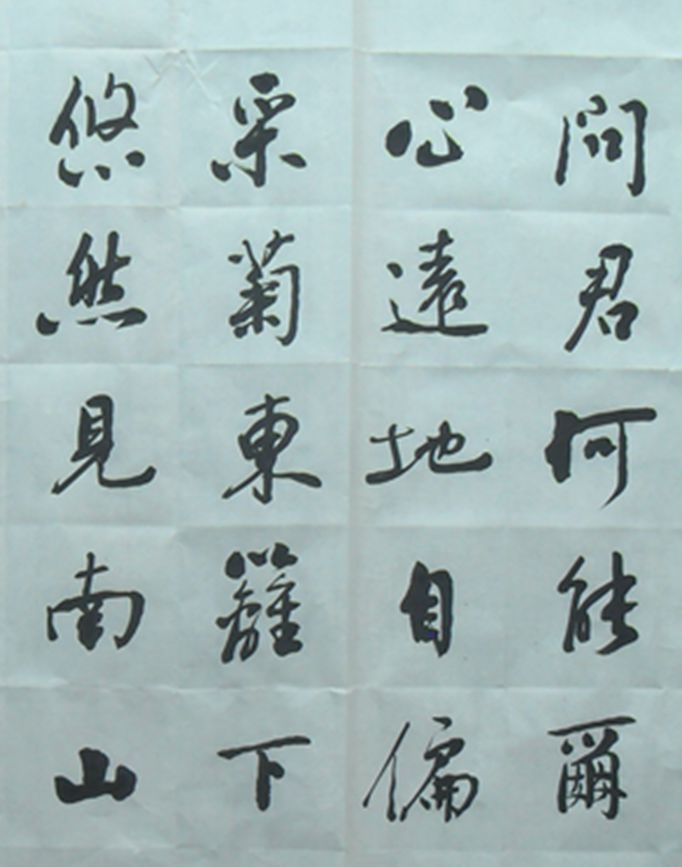 問君何能爾
心遠地自偏
采菊東籬下
悠然見南山